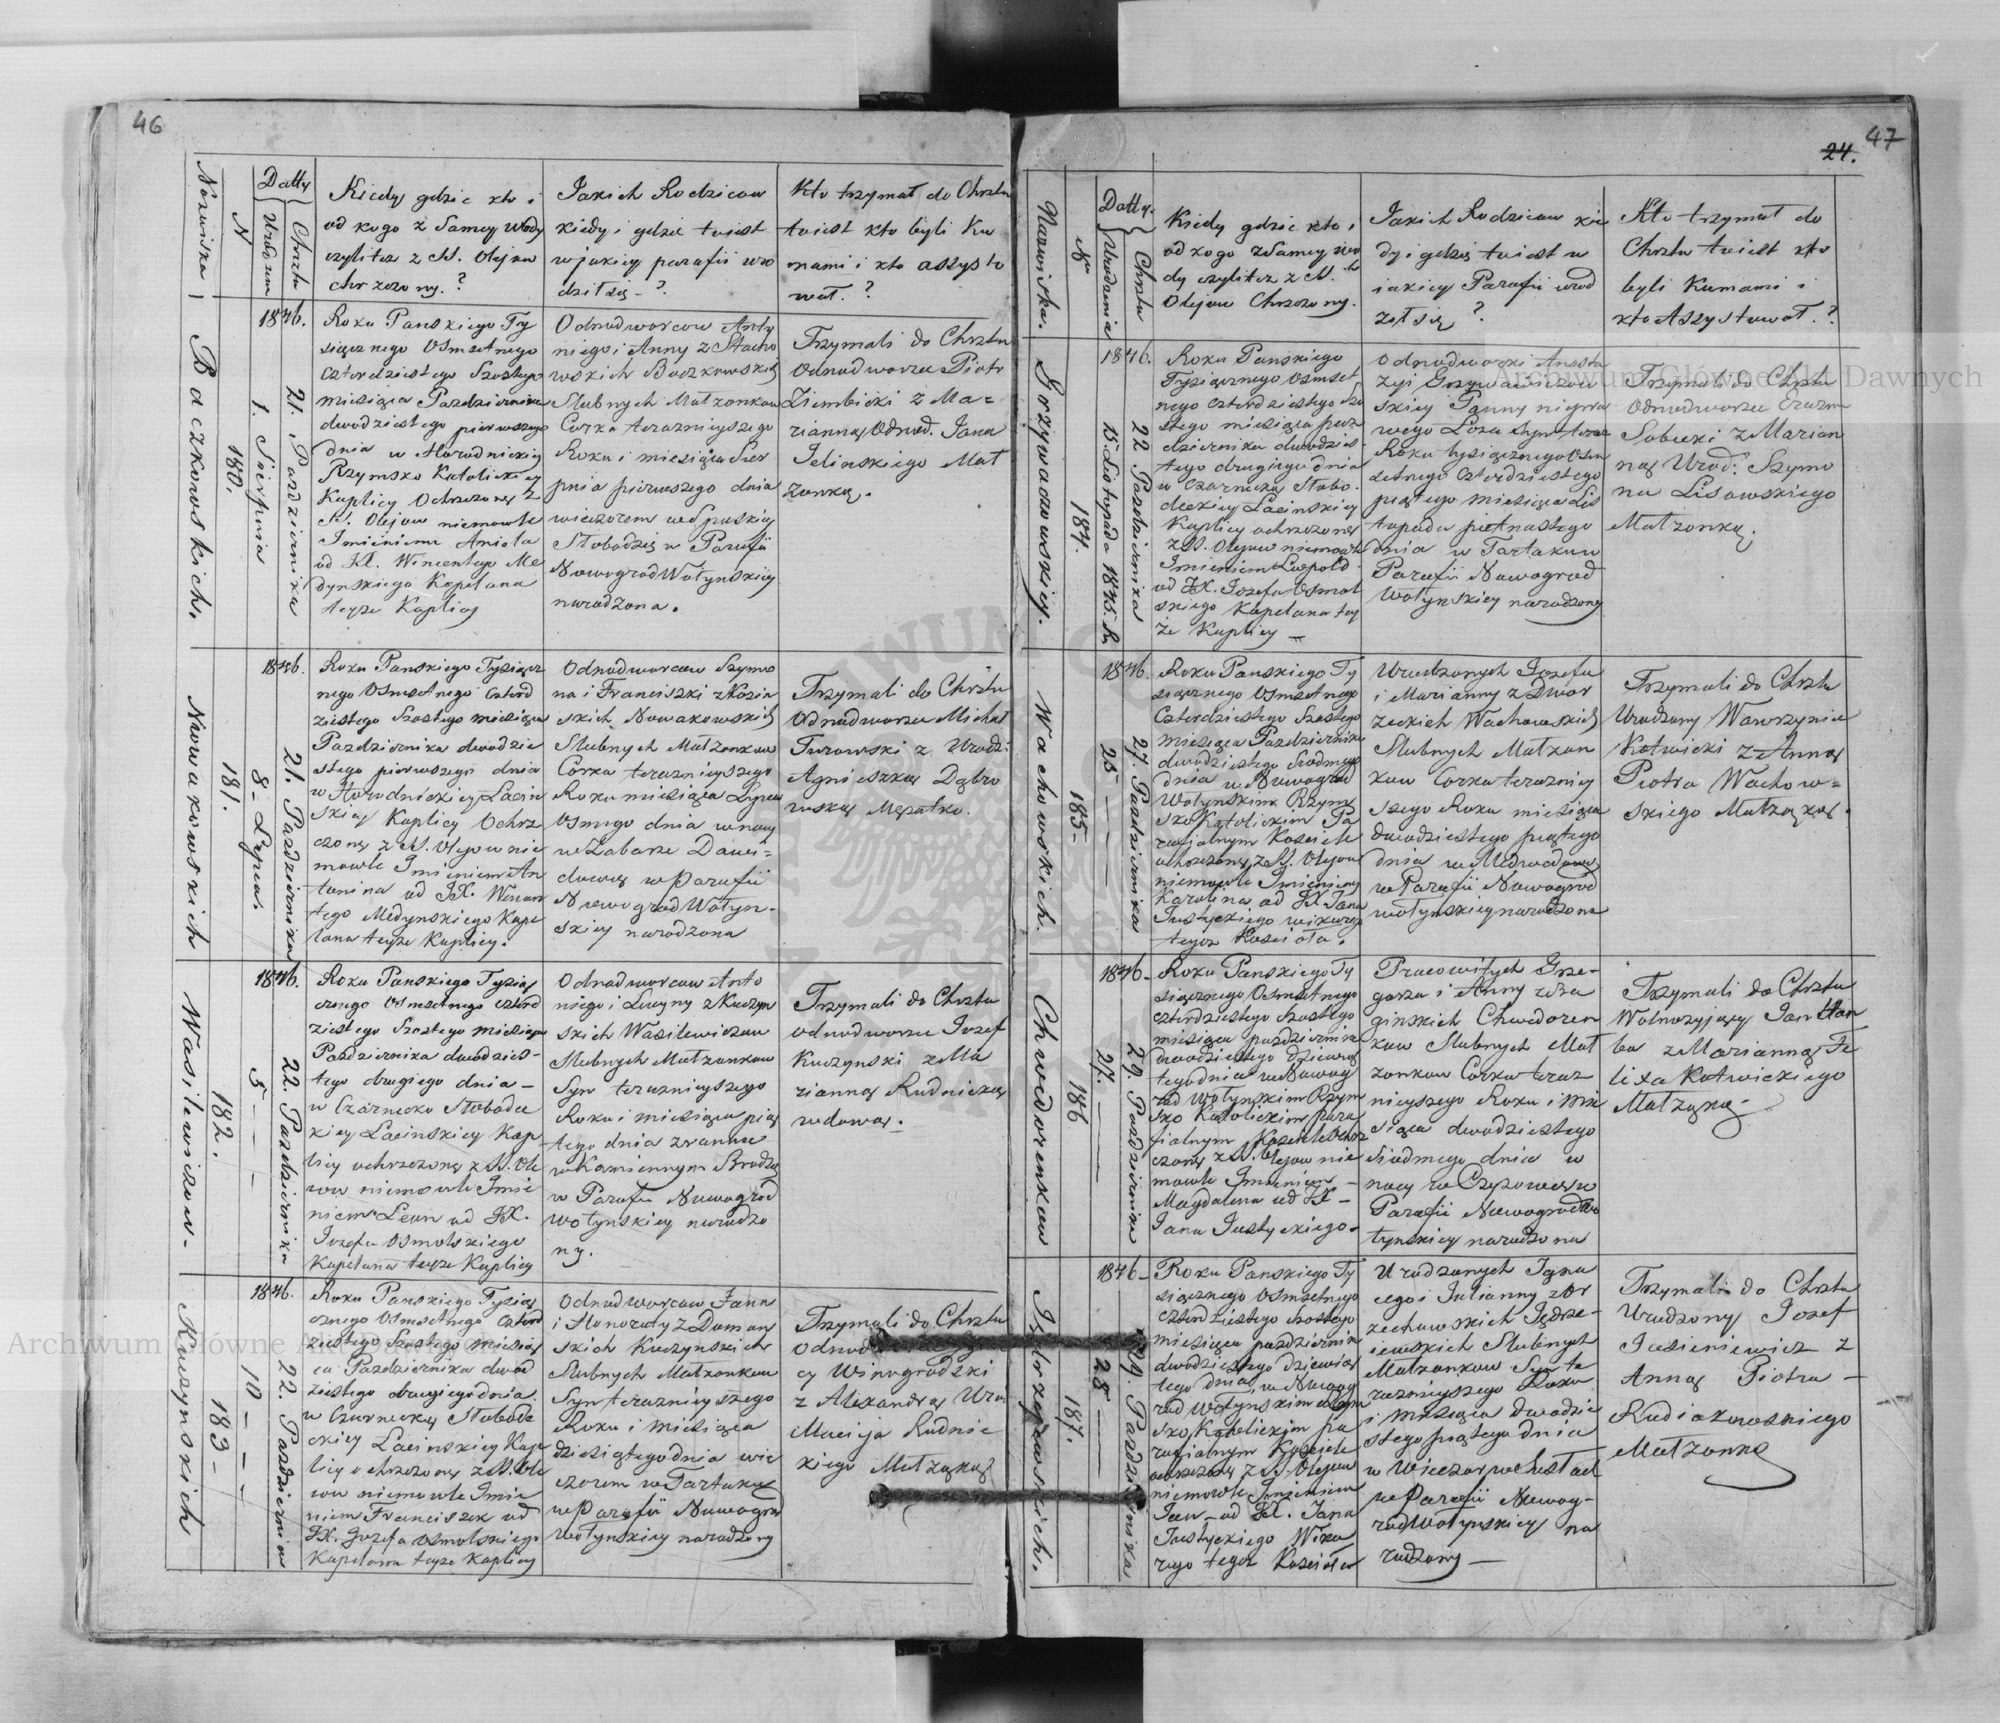 46
Nazwiska
N
Datty
Urodzenia
Chrztu
Kiedy gdzie kto i
od kogo z Samey Wody
czylitez z SS. Olejow
chrzczony.?
Jakich Rodzicow
kiedy i gdzie tudzież
w jakiey parafii uro
dził się - ?
Kto trzymał do Chrztu
tudzież kto byli Ku
mami i kto assysto
wał.?
Baczkowskich.
180.
1. Sierpnia
1846.
21. Pazdziernika
Roku Panskiego Ty
siącznego Osmsetnego
Czterdziestego Szostego
miesiąca Pazdziernika
dwudziestego pierwszego
dnia w Horodnickiey
Rzymsko Katolickiey
Kaplicy Ochrzczony z
SS. Olejow niemowle
Imieniem Aniela
od JX. Wincentego Me
dynskiego Kapelana
teyże Kaplicy
Odnodworcow Anto
niego i Anny z Stacho
wskich Baczkowskich
Slubnych Małzonkow
Corka terazniejszego
Roku i miesiąca Sier
pnia pierwszego dnia
wieczorem we
Słobodzie w Parafii
Nowogrod Wołynskiey
narodzona.
Trzymali do Chrztu
Odnodworzec Piotr
Ziembicki z Ma=
rianną Odnod. Jana
Jelinskiego Mał
żonką.
Nowakowskich
181.
8 - Lipca.
1846.
21. Pazdziernika
Roku Panskiego Tysiącz
nego Osmsetnego Czterd
ziestego Szostego miesiąca
Pazdziernika dwudzie
stego pierwszego dnia
w Horodnickiey Łacin
skiey Kaplicy Ochrz
czony z SS. Olejow nie
mowle Imieniem An
tonina od JX. Wincen
tego Medynskiego Kape
lana teyże Kaplicy.
Odnodworcow Szymo
na i Franciszki z Kozia
skich Nowakowskich
Slubnych Małzonkow
Corka terazniejszego
Roku miesiąca Lipca
Osmego dnia w nocy
w Zabarze Dawi=
dowey w Parafii
Nowogrod Wołyn-
skiey narodzona
Trzymali do Chrztu
Odnodworzec Michał
Turowski z Urodz:
Agnieszką Dąbro
wską Męzatką.
Wasilewiczow-
182.
5 - - -
1846.
22. Pazdziernika
Roku Panskiego Tysiąc
cznego Osmsetnego Czterd
ziestego Szostego miesiąca
Pazdziernika dwudzies-
tego drugiego dnia -
w Czarnecko Słobodec
kiey Łacinskiey Kap
licy ochrzczony z SS. Ole
jow niemowle Imie
niem Leon od JX.
Jozefa Osmolskiego
Kapelana teyże Kaplicy
Odnodworcow Anto
niego i Lucyny z Kuczyn
skich Wasilewiczow
Slubnych Małzonkow
Syn terazniejszego
Roku i miesiąca pią
tego dnia zranu
w Kamiennym Brodzie
w Parafii Nowogrod
Wołynskiey narodzo
ny.
Trzymali do Chrztu
odnodworzec Jozef
Kuczynski z Ma
rianną Rudnicką
wdową.
Kuczynskich
183 -
10 - - -
1846.
22. Pazdziernika
Roku Panskiego Tysią
cznego Osmsetnego Czterd
ziestego Szostego miesią
ca Pazdziernika dwud
ziestego drugiego dnia
w Czarnecko Słobode
ckiey Łacinskiey Kap
licy ochrzczony z SS. Ole
jow niemowle Imie
niem Franciszek od
JX. Jozefa Osmolskiego
Kapelana teyże Kaplicy
Odnodworcow Jana
i Honoraty z Doman
skich Kuczynskich
Slubnych Małzonkow
Syn terazniejszego
Roku i Miesiąca
dziesiątego dnia wie
czorem w Tartaku
w Parafii Nowogrod
Wołynskiey narodzony
Trzymali do Chrztu
cy Winogrodzki
z Alexandrą Uro
Macieja Rudnic
kiego Małzonką
47
24.
Nazwiska.
Nr
Datty.
Urodzenia
Chrztu
Kiedy gdzie kto i
od kogo z Samey wo
dy czylitez z SS.
Olejow Chrzczony.
Jakich Rodzicow kie
dy i gdzie tudzież w
jakiey Parafii urod
ził się ?
Kto trzymał do
Chrztu tudzież kto
byli Kumami i
kto Assystował.?
Grzywaczowskiey.
184.
15. Listopada 1845. Ru
1846.
22 Pazdziernika
Roku Panskiego
Tysiącznego Osmset
nego Czterdziestego Szo
stego miesiąca paz
dziernika dwudzies-
tego drugiego dnia
w Czarnecko Słobo-
deckiey Łacinskiey
Kaplicy ochrzczony
z SS. Olejow niemowle
Imieniem Leopold
od JX. Jozefa Osmol
skiego Kapelana tey
że Kaplicy -
Odnodworki Anasta
zyi Grzywaczow
skiey Panny niepra
wego Loża Syn teraz
Roku tysiącznego Osm
setnego Czterdziestego
piątego miesiąca Lis
topada piętnastego
dnia w Tartaku
Parafii Nowogrod
Wołynskiey narodzony
Trzymali do Chrztu
Odnodworzec Erazm
Sobecki z Marian
ną Urod: Szymo
na Lisowskiego
Małzonką.
Wachowskich.
185 -
25 - - -
1846.
27. Pazdziernika
Roku Panskiego Ty
siącznego Osmsetnego
Czterdziestego Szostego
Miesiąca Pazdziernika
dwudziestego Siodmego
dnia w Nowogrod
Wołynskim Rzym
sko Katolickim Pa
rafialnym Kosciele
ochrzczony z SS. Olejow
niemowle Imieniem
Karolina od JX Jana
Justyckiego wikarego
tegoz Kosciola.
Urodzonych Jozefa
i Marianny z Dwor
zeckich Wachowskich
Slubnych Małzon
kow Corka terazniey
szego Roku miesiąca
dwudziestego piątego
dnia w Medwedowie
w Parafii Nowogrod
wołynskiey narodzona
Trzymali do Chrztu
Urodzony Wawrzyniec
Kotwicki z Anną
Piotra Wachow=
skiego Małzonką.
Chwedorenkow
186
27. - - -
1846.
29. Pazdziernika
Roku Panskiego Ty
siącznego Osmsetnego
Czterdziestego Szostego
miesiąca pazdziernika
dwudziestego dziewią
tego dnia w Nowog
rod Wołynskim Rzym
sko Katolickim para
fialnym Kosciele Ochrz
czony z SS. Olejow nie
mowle Imieniem -
Magdalena od JX -
Jana Justyckiego-
Pracowitych Grze-
gorza i Anny z Za
ginskich Chwedoren
kow Slubnych Mał
zonkow Corka teraz
niejszego Roku i mie
siąca dwudziestego
Siodmego dnia w
nocy w Czyżowce w
Parafii Nowogrodwo
łynskiey narodzona
Trzymali do Chrztu
Wolnozyjący Jan Han
ba z Marianną Fe
lixa Kotwickiego
Małzonką-
Jędrzejewskich.
187.
25 - - -
1846-
29. Pazdziernika
Roku Panskiego Ty
siącznego Osmsetnego
Czterdziestego Szostego
miesiąca pazdziernika
dwudziestego dziewią
tego dnia w Nowog
rod Wołynskim Rzym
sko Katolickim pa
rafialnym Kosciele
ochrzczony z SS. Olejow
niemowle Imieniem
Jan - od JX. Jana
Justyckiego Wika
rego tegoz Kosciola
Urodzonych Igna
cego i Julianny z Or
zechowskich Jędrze-
jewskich Slubnych
Małzonkow Syn te
razniejszego Roku
i miesiąca dwudzie
stego piątego dnia
w Wieczor
w Parafii Nowog-
rodWołynskiey na
rodzony -
Trzymali do Chrztu
Urodzony Jozef
Jasieniewicz z
Anną Piotra -
Rudiakowskiego
Małzonką
Archiwum Główne Akt Dawnych